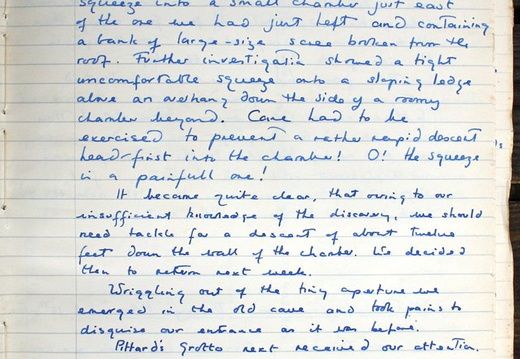 squeeze into a small chamber just east
of the one we had just left and containing
a bank of large-size scree broken from the
roof. Further investigation showed a tight
uncomfortable squeeze onto a sloping ledge
above an overhang down the side of a roomy
chamber beyond. Care had to be
exercised to prevent a rather rapid descent
head-first into the chamber! O! the squeeze
is a painfull one!
It became quite clear, that owing to our
insufficient knowledge of the discovery, we should
need tackle for a descent of about twelve
feet down the wall of the chamber. We decided
then to return next week.
Wriggling out of the tiny aperture we
emerged in the old cave and took pains to
disguise our entrance as it was before.
Pittard's Grotto next received our attention.